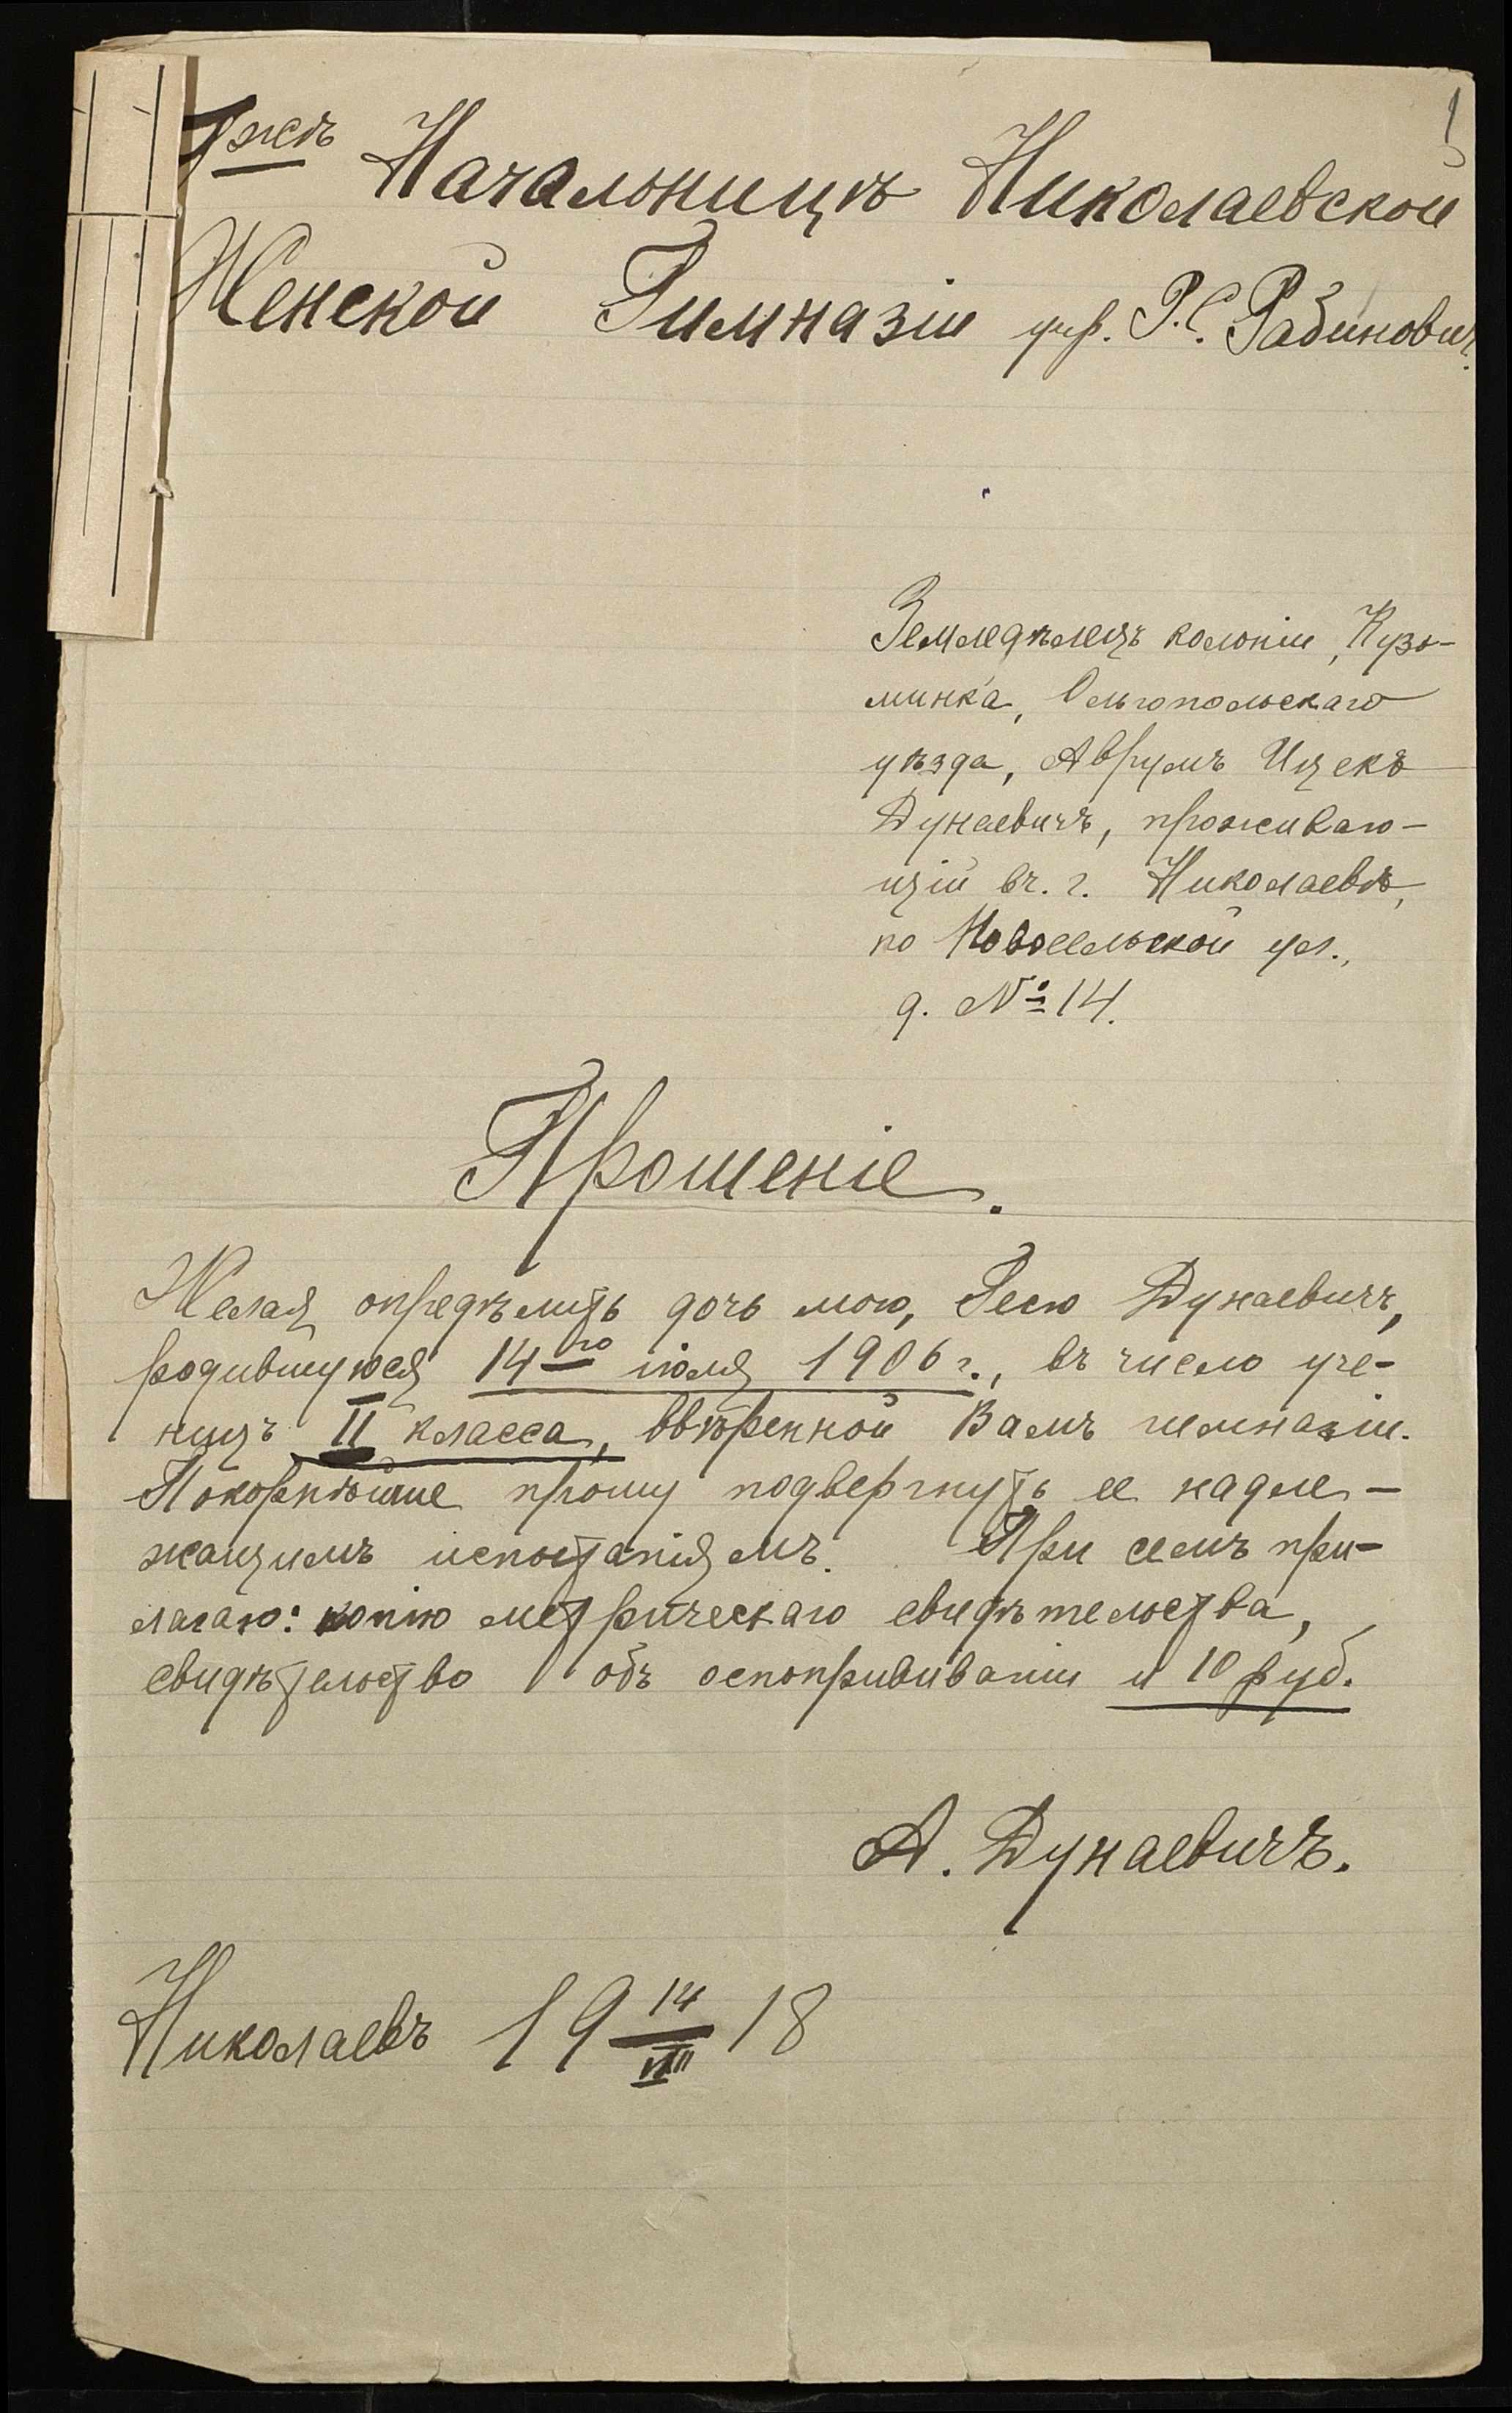 1
Г-жѣ Начальницѣ Николаевской
Женской Гимназіи учр. Р. С. Рабинович.
Земледѣлецъ колоніи, Кузь-
минка, Ольгопольскаго
уѣзда, Аврумъ Ицекъ
Дунаевичъ, проживаю-
щій въ. г. Николаевѣ,
по Новосельской ул.,
д. № 14.
Прошеніе.
Желая опредѣлить дочь мою, Гесю Дунаевичъ,
родившуюся 14-го іюля 1906 г., въ число уче-
ницъ II класса, ввѣренной Вамъ гимназіи.
Покорнѣйше прошу подвергнуть ее надле-
жащимъ испытаніямъ. При семъ при-
лагаю: копію метрическаго свидѣтельства,
свидѣтельство объ оспопрививаніи и 10 руб.
А. Дунаевичъ.
Николаевъ 19 14/VIII 18